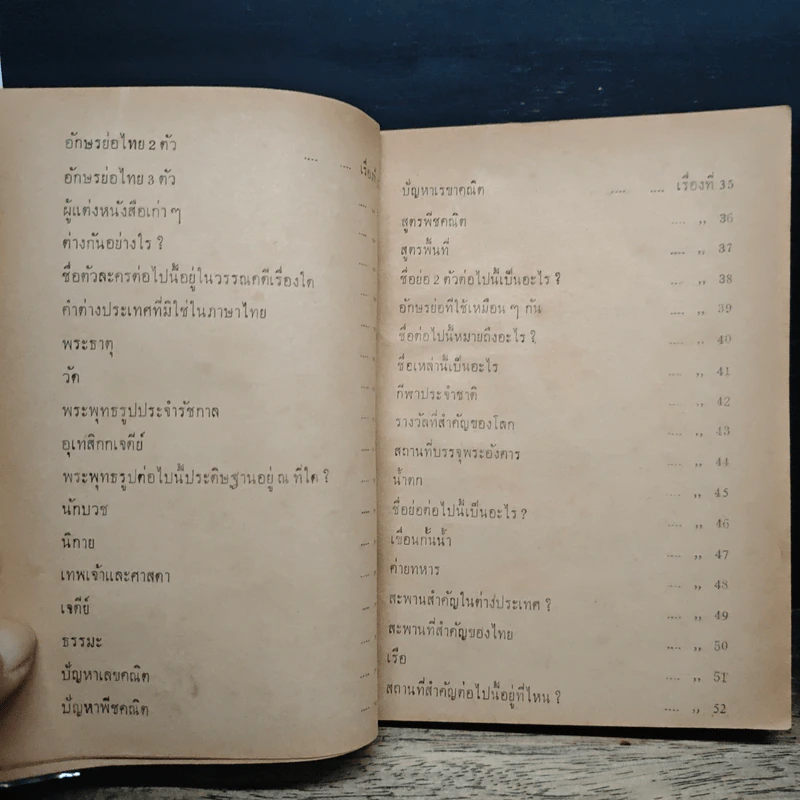 อักษรย่อไทย 2 ตัว .... .... เรื่องที่
อักษรย่อไทย 3 ตัว
ผู้แต่งหนังสือเก่า ๆ
ต่างกันอย่างไร ?
ชื่อตัวละครต่อไปนี้อยู่ในวรรณคดีเรื่องใด
คำต่างประเทศที่มีใช้ในภาษาไทย
พระธาตุ
วัด
พระพุทธรูปประจำรัชกาล
อุเทสิกกเจดีย์
พระพุทธรูปต่อไปนี้ประดิษฐานอยู่ ณ ที่ใด ?
นักบวช
นิกาย
เทพเจ้าและศาสดา
เจดีย์
ธรรมะ
ปัญหาเลขคณิต
ปัญหาพีชคณิต
ปัญหาเรขาคณิต .... .... เรื่องที่ 35
สูตรพีชคณิต .... ,, 36
สูตรพื้นที่ .... ,, 37
ชื่อย่อ 2 ตัวต่อไปนี้เป็นอะไร ? .... ,, 38
อักษรย่อที่ใช้เหมือน ๆ กัน .... ,, 39
ชื่อต่อไปนี้หมายถึงอะไร ? .... ,, 40
ชื่อเหล่านี้เป็นอะไร .... ,, 41
กีฬาประจำชาติ .... ,, 42
รางวัลที่สำคัญของโลก .... ,, 43
สถานที่บรรจุพระอังคาร .... ,, 44
น้ำตก .... ,, 45
ชื่อย่อต่อไปนี้เป็นอะไร ? .... ,, 46
เขื่อนกั้นน้ำ .... ,, 47
ค่ายทหาร .... ,, 48
สะพานสำคัญในต่างประเทศ ? .... ,, 49
สะพานที่สำคัญของไทย .... ,, 50
เรือ .... ,, 51
สถานที่สำคัญต่อไปนี้อยู่ที่ไหน ? .... ,, 52